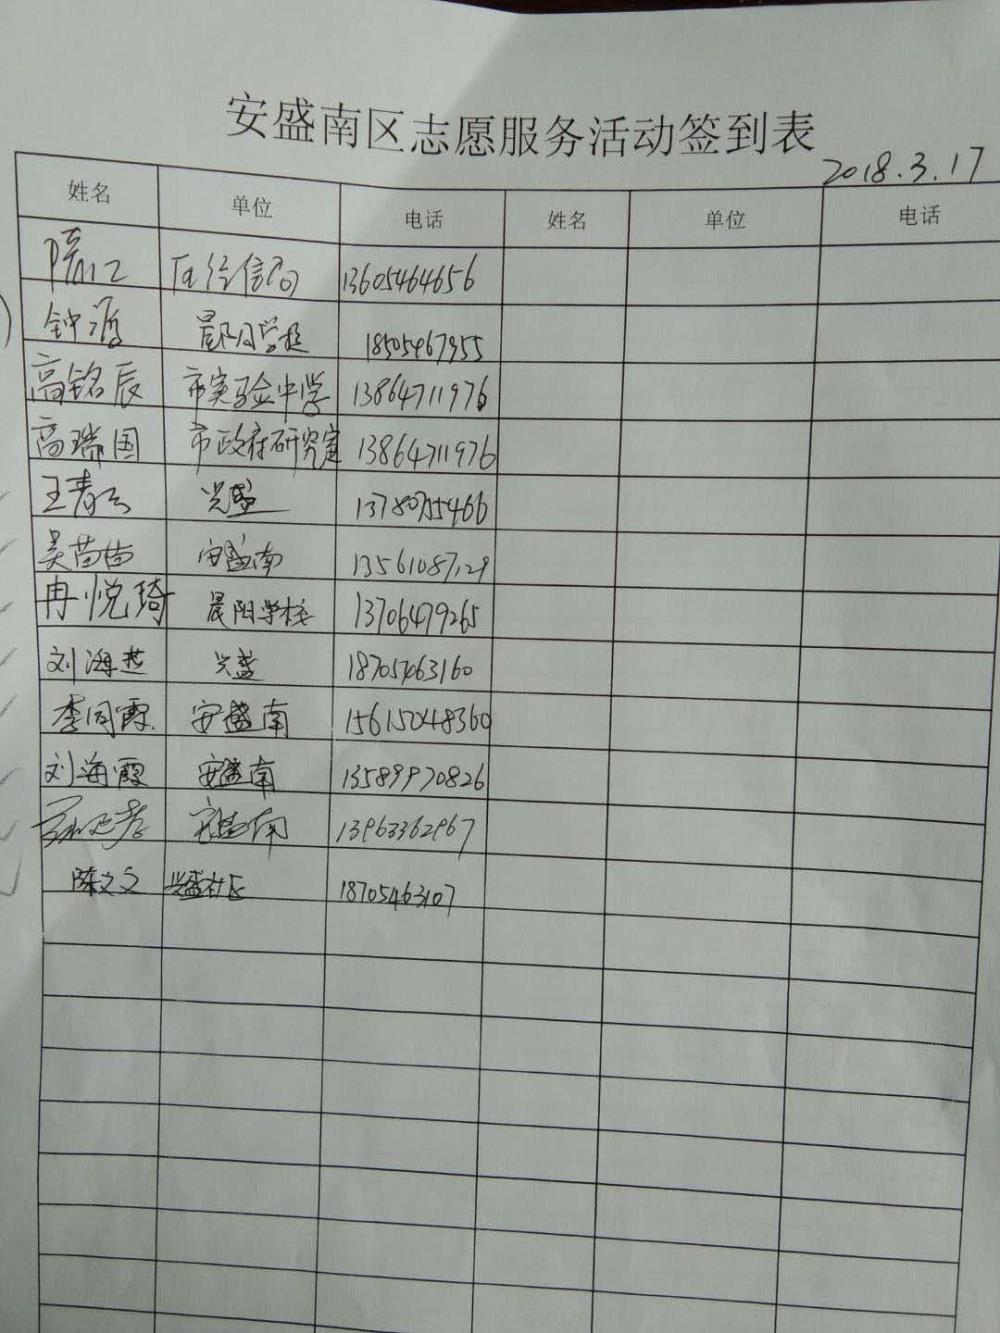 安盛南区志愿服务活动签到表
2018.3.17
姓名 单位 电话 姓名 单位 电话
区经信局 13605464656
钟源 晨阳学校 18505467955
高铭辰 市实验中学 13864711976
高瑞国 市政府研究室 13864711976
王青云 兴盛 13780755466
吴苗苗 安盛南 13561087129
冉悦琦 晨阳学校 13706479265
刘海燕 兴盛 18705463160
李同霞 安盛南 15615048360
刘海霞 安盛南 13589970826
安盛南 13963362967
陈文文 兴盛社区 18705463107